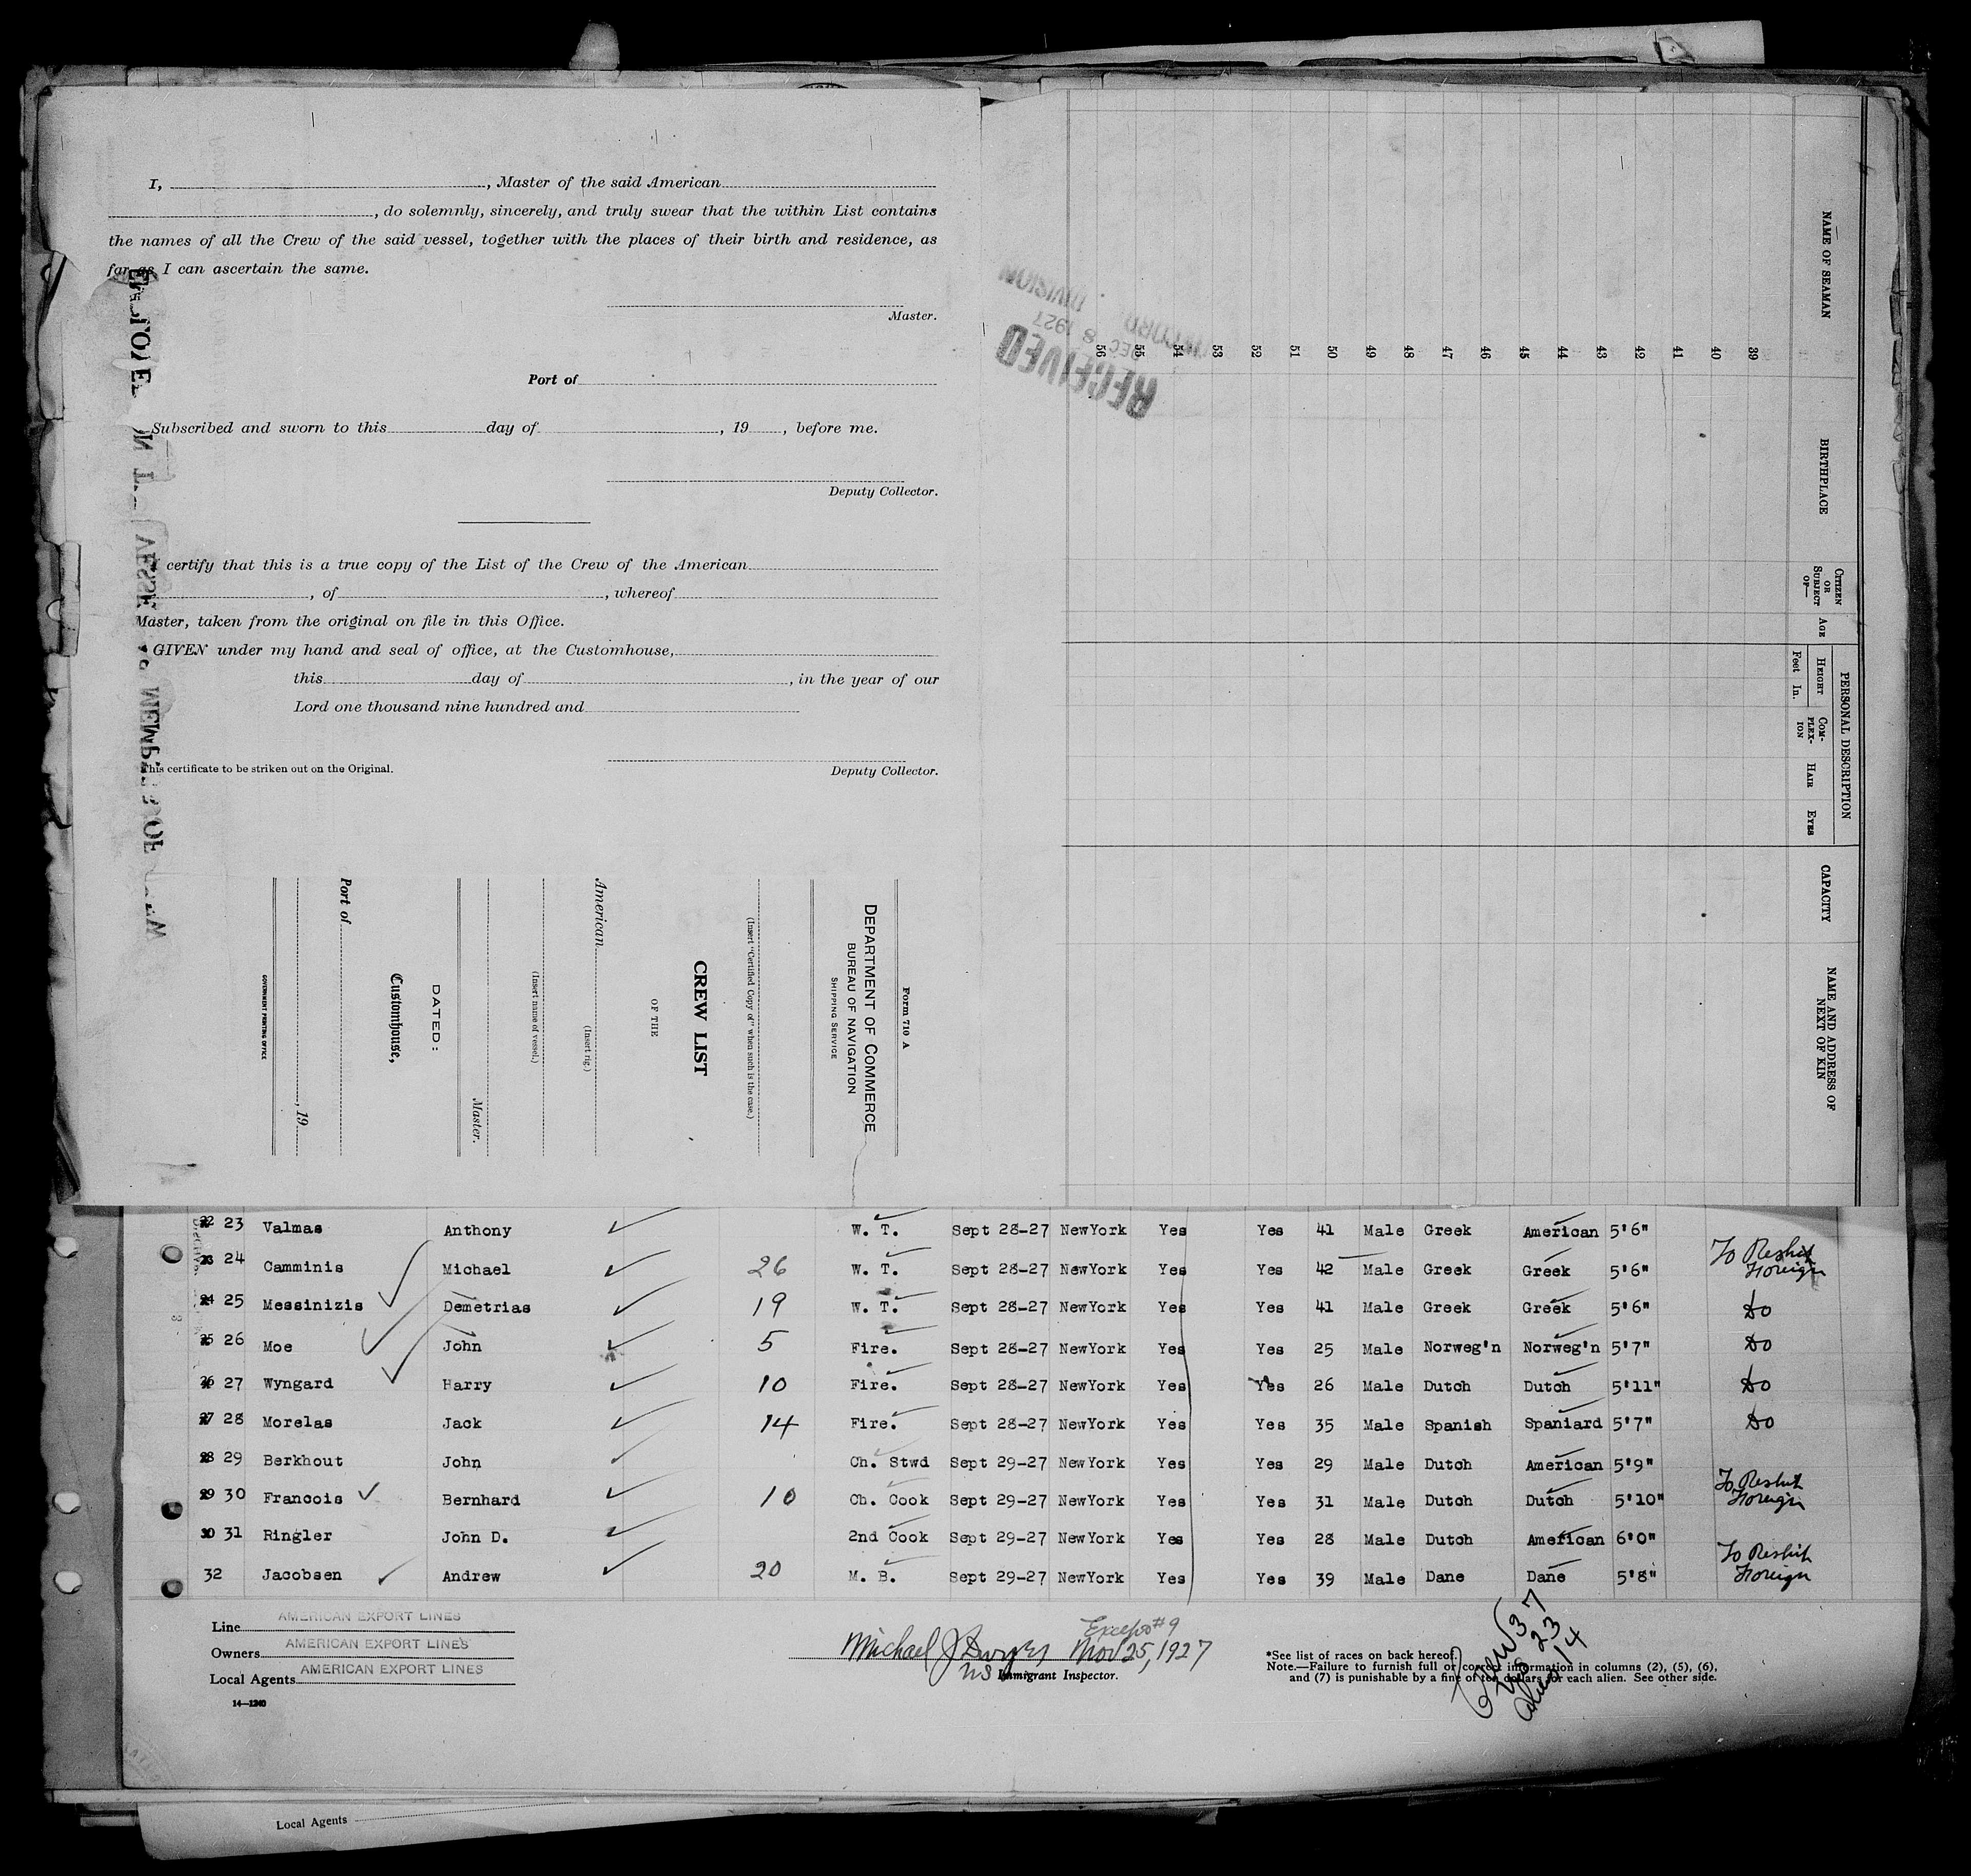 I, , Master of the said American
, do solemnly, sincerely, and truly swear that the within List contains
the names of all the Crew of the said vessel, together with the places of their birth and residence, as
far as I can ascertain the same.
Master.
Port of
Subscribed and sworn to this day of , 19 , before me.
Deputy Collector.
certify that this is a true copy of the List of the Crew of the American
, of , whereof
Master, taken from the original on file in this Office.
GIVEN under my hand and seal of office, at the Customhouse,
this day of , in the year of our
Lord one thousand nine hundred and
This certificate to be striken out on the Original.
Deputy Collector.
Form 710 A
DEPARTMENT OF COMMERCE
BUREAU OF NAVIGATION
SHIPPING SERVICE
(Insert "Certified Copy of" when such is the case.)
CREW LIST
OF THE
American
(Insert rig.)
(Insert name of vessel.)
Master.
DATED:
Customhouse,
Port of
, 19
GOVERNMENT PRINTING OFFICE
RECEIVED
DEC 8 1927
RECORD
DIVISION
NAME OF SEAMAN
BIRTHPLACE
CITIZEN OR SUBJECT OF—
AGE
PERSONAL DESCRIPTION
HEIGHT
Feet In.
COM-PLEX-ION
HAIR
EYES
CAPACITY
NAME AND ADDRESS OF NEXT OF KIN
39
40
41
42
43
44
45
46
47
48
49
50
51
52
53
54
55
56
22 23 Valmas Anthony W. T. Sept 28-27 NewYork Yes Yes 41 Male Greek American 5'6"
23 24 Camminis Michael 26 W. T. Sept 28-27 NewYork Yes Yes 42 Male Greek Greek 5'6" To Reship Foreign
24 25 Messinizis Demetrias 19 W. T. Sept 28-27 NewYork Yes Yes 41 Male Greek Greek 5'6" Do
25 26 Moe John 5 Fire. Sept 28-27 NewYork Yes Yes 25 Male Norweg'n Norweg'n 5'7" Do
26 27 Wyngard Harry 10 Fire. Sept 28-27 NewYork Yes Yes 26 Male Dutch Dutch 5'11" Do
27 28 Morelas Jack 14 Fire. Sept 28-27 NewYork Yes Yes 35 Male Spanish Spaniard 5'7" Do
28 29 Berkhout John Ch. Stwd Sept 29-27 NewYork Yes Yes 29 Male Dutch American 5'9"
29 30 Francois Bernhard 10 Ch. Cook Sept 29-27 NewYork Yes Yes 31 Male Dutch Dutch 5'10" To Reship Foreign
30 31 Ringler John D. 2nd Cook Sept 29-27 NewYork Yes Yes 28 Male Dutch American 6'0"
32 Jacobsen Andrew 20 M. B. Sept 29-27 NewYork Yes Yes 39 Male Dane Dane 5'8" To Reship Foreign
Line AMERICAN EXPORT LINES
Owners AMERICAN EXPORT LINES
Local Agents AMERICAN EXPORT LINES
14—1240
Except #9
Michael J Dwyer Nov 25, 1927
US Immigrant Inspector.
*See list of races on back hereof.
Note.—Failure to furnish full or correct information in columns (2), (5), (6),
and (7) is punishable by a fine of ten dollars for each alien. See other side.
Crew 37
USs 23
Aliens 14
Local Agents